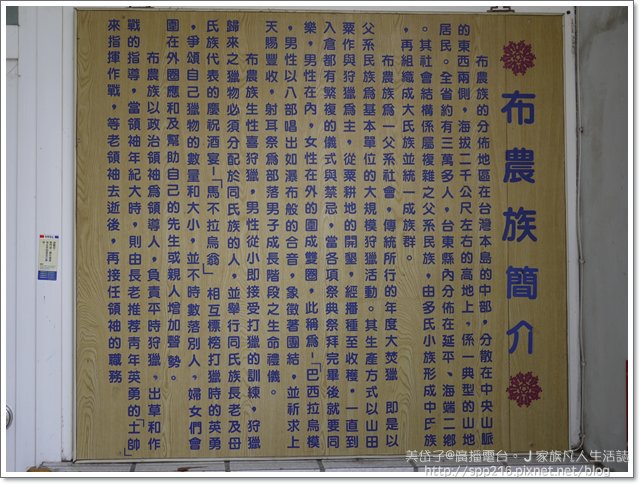 布農族簡介
布農族的分佈地區在台灣本島的中部，分散在中央山脈
的東西兩側，海拔二千公尺左右的高地上，係一典型的山地
居民。全省約有三萬多人，台東縣內分佈在延平、海端二鄉
。其社會結構係屬複雜之父系民族，由多氏小族形成中氏族
，再組織成大氏族並統一成族群。
布農族為一父系社會，傳統所行的年度大焚獵 即是以
父系民族為基本單位的大規模狩獵活動。其生產方式以山田
粟作與狩獵為主，從粟耕地的開墾，經播種至收穫，一直到
入倉都有繁複的儀式與禁忌，當各項祭典祭拜完畢後就要同
樂，男性在內，女性在外的圍成雙圈，此稱為-「巴西拉烏模
，男性以八部唱出如瀑布般的合音，象徵著團結，並祈求上
天賜豐收，射耳祭為部落男子成長階段之生命禮儀。
布農族生性喜狩獵，男性從小即接受打獵的訓練，狩獵
歸來之獵物必須分配於同氏族的人，並舉行同氏族長老及母
氏族代表的慶祝酒宴-「馬不拉烏翁」 相互標榜打獵時的英勇
，爭頌自己獵物的數量和大小，並不時數落別人，婦女們會
圍在外圈應和及幫助自己的先生或親人增加聲勢。
布農族以政治領袖為領導人，負責平時狩獵，出草和作
戰的指導，當領袖年紀大時，則由長老推荐青年英勇的士帥
來指揮作戰，等老領袖去逝後，再接任領袖的職務
美岱子@廣播電台。J 家族凡人生活誌
http://spp216.pixnet.net/blog